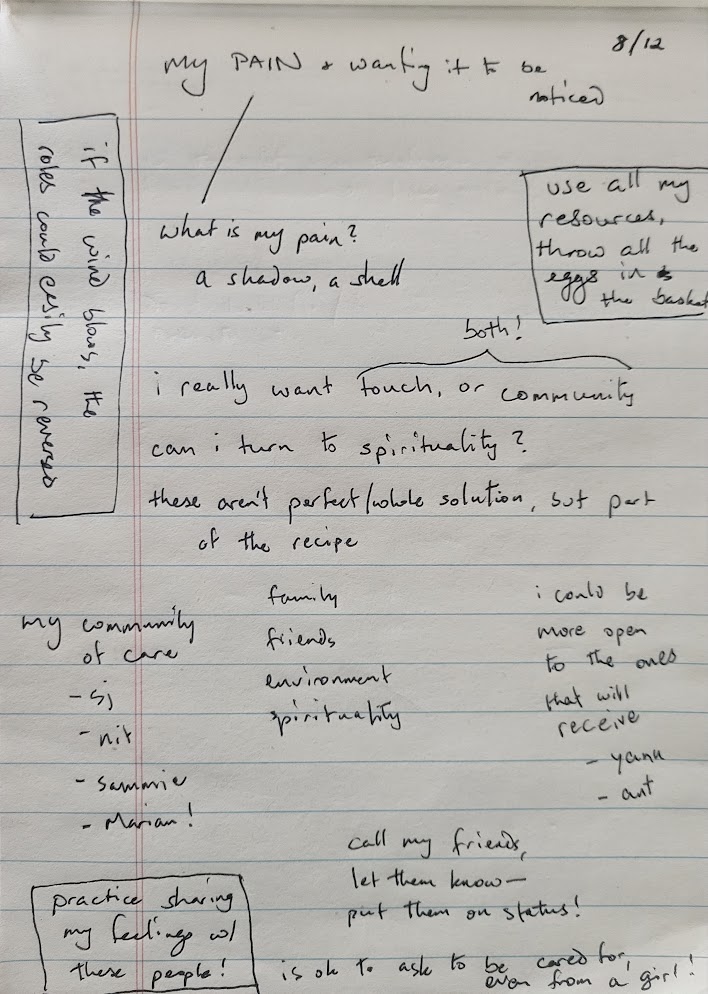 8/12
my PAIN + wanting it to be
noticed
if the wind blows, the
roles could easily be reversed
use all my
resources,
throw all the
eggs in
the basket
what is my pain?
a shadow, a shell
both!
i really want touch, or community
can i turn to spirituality?
these aren't perfect/whole solution, but part
of the recipe
my community
of care
- sj
- nit
- sammie
- Marian!
family
friends
environment
spirituality
i could be
more open
to the ones
that will
receive
- yanu
- ant
call my friends,
let them know—
put them on status!
practice sharing
my feelings w/
these people!
is ok to ask to be cared for,
even from a girl!